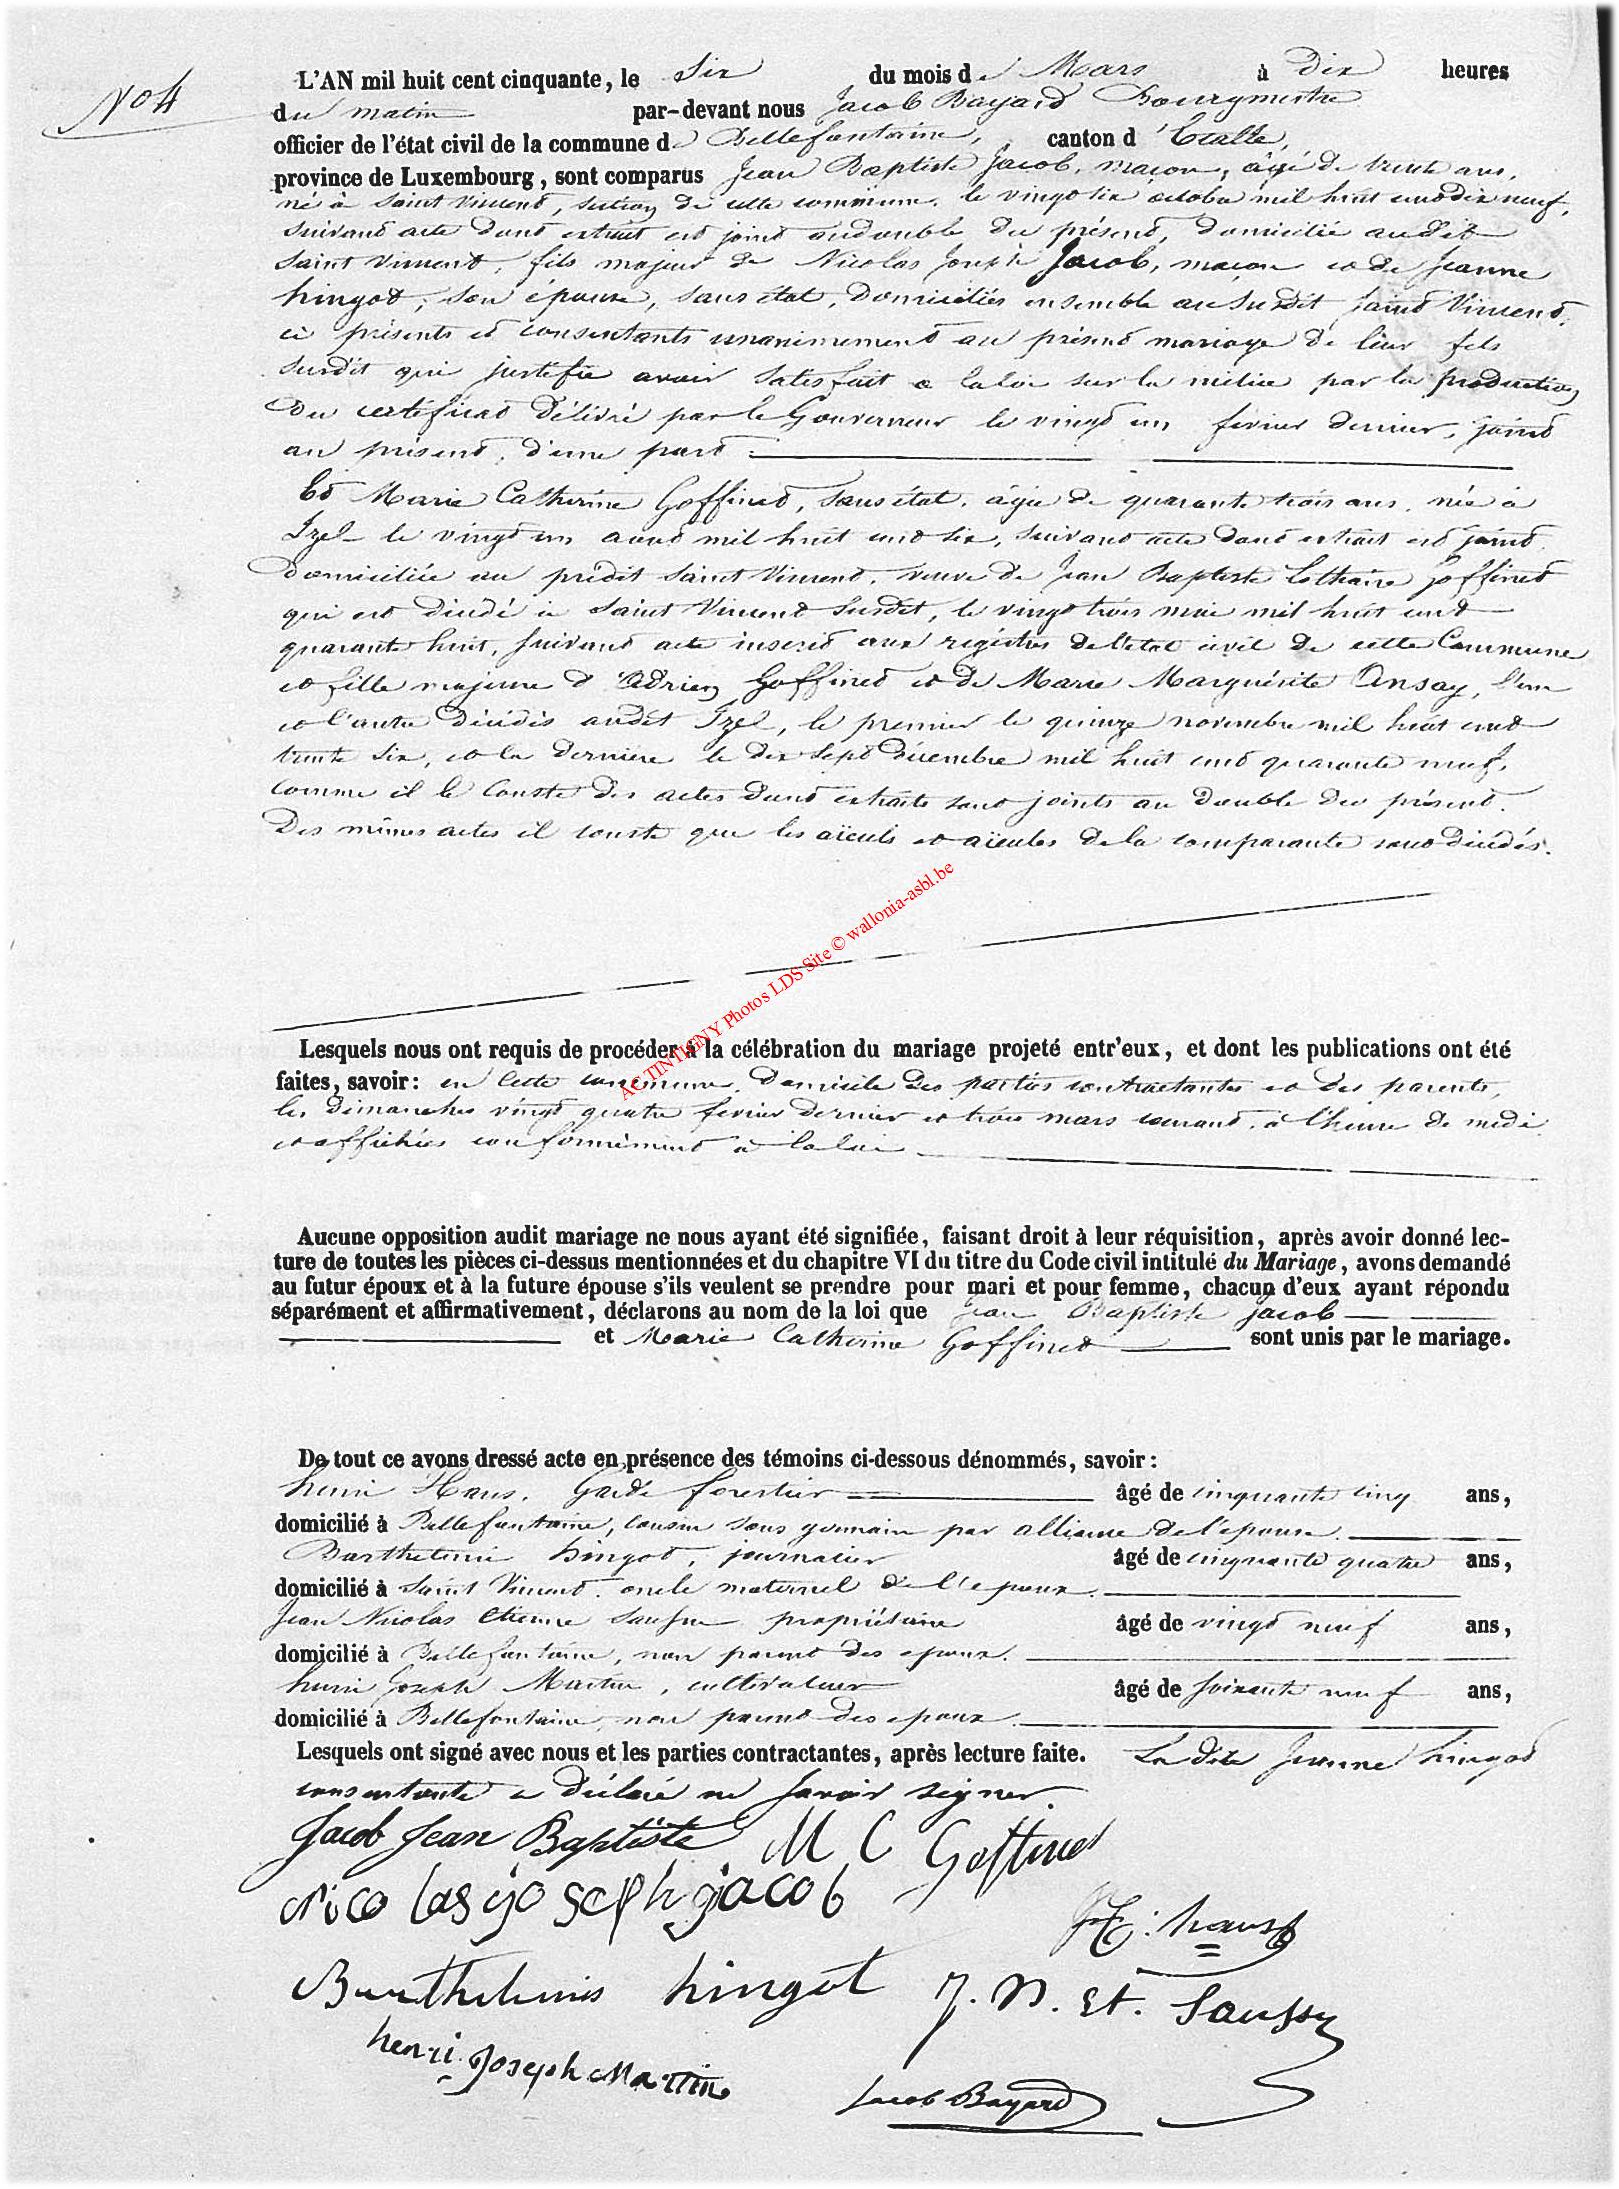 N° 4
L'AN mil huit cent cinquante, le six du mois de Mars à dix heures
du matin par-devant nous Jacob Bayard Bourgmestre
officier de l'état civil de la commune de Bellefontaine, canton d'Etalle,
province de Luxembourg, sont comparus Jean Baptiste Jacob, maçon, âgé de trente ans,
né à Saint Vincent, section de cette commune, le vingt six octobre mil huit cent dix neuf,
suivant acte dont extrait est joint au double du présent, domicilié audit
Saint Vincent, fils majeur de Nicolas Joseph Jacob, maçon et de Jeanne
hingot, son épouse, sans état, domiciliés ensemble au susdit Saint Vincent,
ci présents et consentants unanimement au présent mariage de leur fils
susdit qui justifie avoir satisfait à la loi sur la milice par la production
du certificat délivré par le Gouverneur le vingt un février dernier, joint
au présent, d'une part.
Et Marie Catherine Goffinet, sans état, âgée de quarante trois ans, née à
Izel le vingt un août mil huit cent six, suivant acte dont extrait est joint
domiciliée au prédit Saint Vincent, veuve de Jean Baptiste Lothaire Goffinet
qui est décédé à Saint Vincent susdit, le vingt trois mai mil huit cent
quarante huit, suivant acte inseré aux régistres de l'état civil de cette Commune
et fille majeure d'Adrien Goffinet et de Marie Marguérite Ansay, l'un
et l'autre décédés audit Izel, le premier le quinze novembre mil huit cent
trente six, et la dernière le dix sept décembre mil huit cent quarante neuf,
comme il le conste des actes dont extraits sont joints au double du présent.
Des mêmes actes il conste que les aïeuls et aïeules de la comparante sont décédés.
AC TINTIGNY Photos LDS Site © wallonia-asbl.be
Lesquels nous ont requis de procéder à la célébration du mariage projeté entr'eux, et dont les publications ont été
faites, savoir: en cette commune, domicile des parties contractantes et des parents,
les dimanches vingt quatre février dernier et trois mars courant, à l'heure de midi
et affichées conformément à la loi
Aucune opposition audit mariage ne nous ayant été signifiée, faisant droit à leur réquisition, après avoir donné lec-
ture de toutes les pièces ci-dessus mentionnées et du chapitre VI du titre du Code civil intitulé du Mariage, avons demandé
au futur époux et à la future épouse s'ils veulent se prendre pour mari et pour femme, chacun d'eux ayant répondu
séparément et affirmativement, déclarons au nom de la loi que Jean Baptiste Jacob
et Marie Catherine Goffinet sont unis par le mariage.
De tout ce avons dressé acte en présence des témoins ci-dessous dénommés, savoir:
henri Haus, Garde forestier âgé de cinquante cinq ans,
domicilié à Bellefontaine, cousin sous germain par alliance de l'épouse.
Barthelemi hingot, journalier âgé de cinquante quatre ans,
domicilié à Saint Vincent, oncle maternel de l'époux.
Jean Nicolas Etienne propriétaire âgé de vingt neuf ans,
domicilié à Bellefontaine, non parent des époux.
henri Joseph Martin, cultivateur âgé de soixante neuf ans,
domicilié à Bellefontaine, non parent des époux
Lesquels ont signé avec nous et les parties contractantes, après lecture faite. La dite Jeanne hingot
consentante a déclaré ne savoir signer.
Jacob Jean Baptiste M C Goffinet
Nicolas joseph jacob
Barthelemis hingot J. N. Et.
henri Joseph Martin
Jacob Bayard